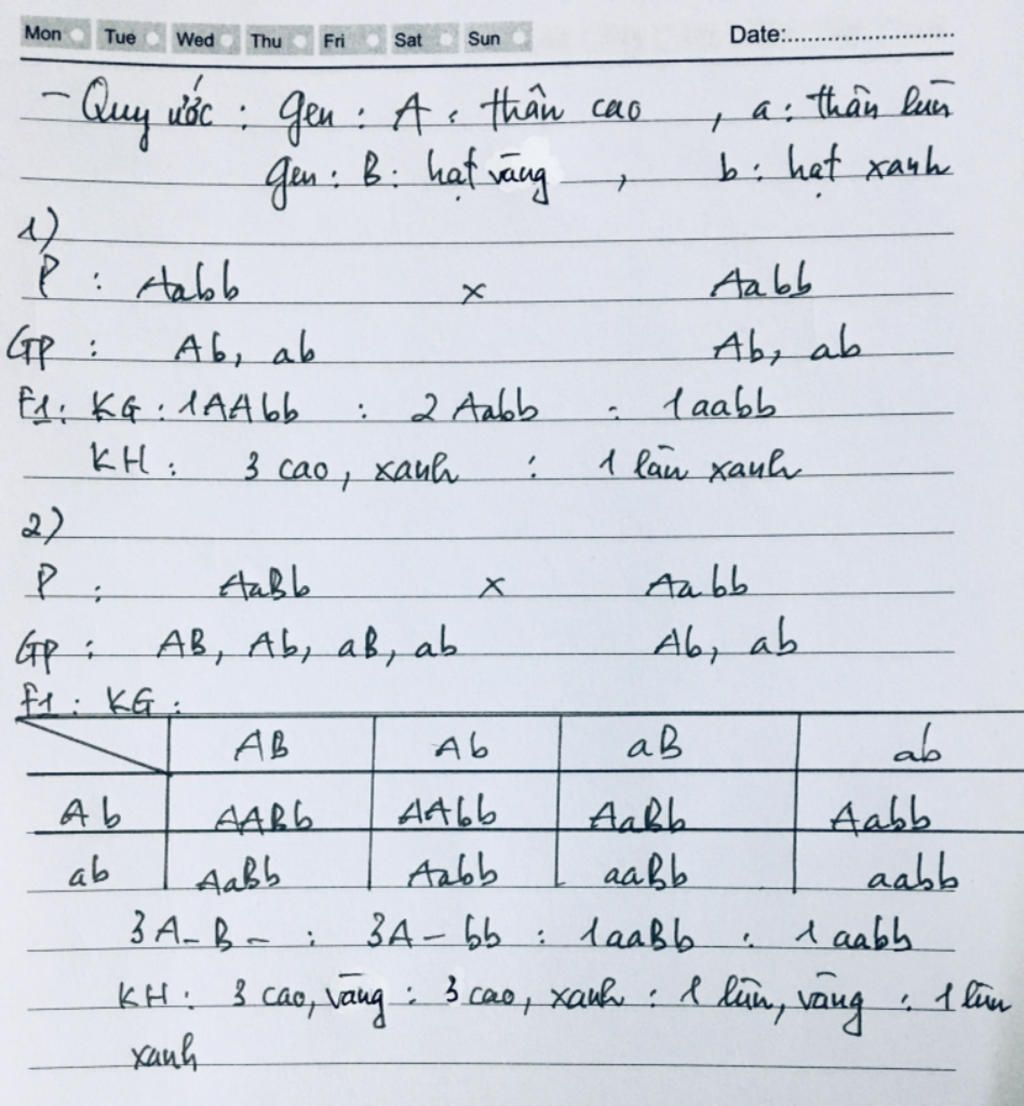 Mon Tue Wed Thu Fri Sat Sun Date:
- Quy ước : gen : A : thân cao , a : thân lùn
gen : B : hạt vàng , b : hạt xanh
1)
P : Aabb x Aabb
GP : Ab, ab Ab, ab
F1 : KG : 1AAbb : 2 Aabb : 1aabb
KH : 3 cao, xanh : 1 lùn xanh
2)
P : AaBb x Aabb
GP : AB, Ab, aB, ab Ab, ab
F1 : KG :
AB Ab aB ab
Ab AABb AAbb AaBb Aabb
ab AaBb Aabb aaBb aabb
3A-B- : 3A-bb : 1aaBb : 1aabb
KH : 3 cao, vàng : 3 cao, xanh : 1 lùn, vàng : 1 lùn
xanh